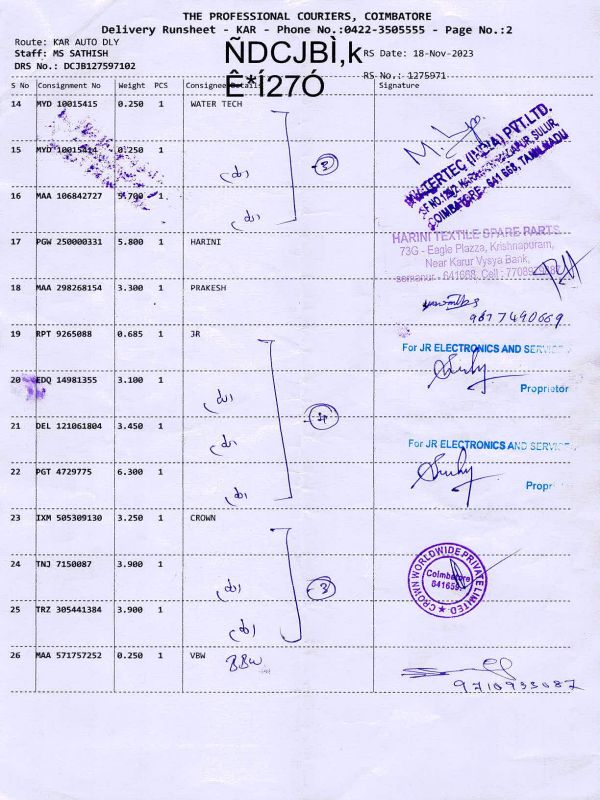 THE PROFESSIONAL COURIERS, COIMBATORE
Delivery Runsheet - KAR - Phone No.:0422-3505555 - Page No.:2
Route: KAR AUTO DLY
Staff: MS SATHISH
RS Date: 18-Nov-2023
DRS No.: DCJB127597102
ÑDCJBÌ,k
Ê*Í27Ó
RS No.: 1275971
S No Consignment No Weight PCS Consignee Details Signature
14 MYD 10015415 0.250 1 WATER TECH
15 MYD 10015414 0.250 1
3
(INDIA) PVT.LTD.
COIMBATORE - 641 668, TAMILNADU
16 MAA 106842727 5.700 1
17 PGW 250000331 5.800 1 HARINI
HARINI TEXTILE SPARE PARTS
73G - Eagle Plazza, Krishnapuram,
Near Karur Vysya Bank,
18 MAA 298268154 3.300 1 PRAKESH
9677490669
19 RPT 9265088 0.685 1 JR
For JR ELECTRONICS AND SERVICE
20 EDQ 14981355 3.100 1
Proprietor
4
21 DEL 121061804 3.450 1
For JR ELECTRONICS AND SERVIC
22 PGT 4729775 6.300 1
Propr
23 IXM 505309130 3.250 1 CROWN
24 TNJ 7150087 3.900 1
3
CROWN WORLDWIDE PRIVATE LIMITED
Coimbatore
641659
25 TRZ 305441384 3.900 1
26 MAA 571757252 0.250 1 VBW
9710933087